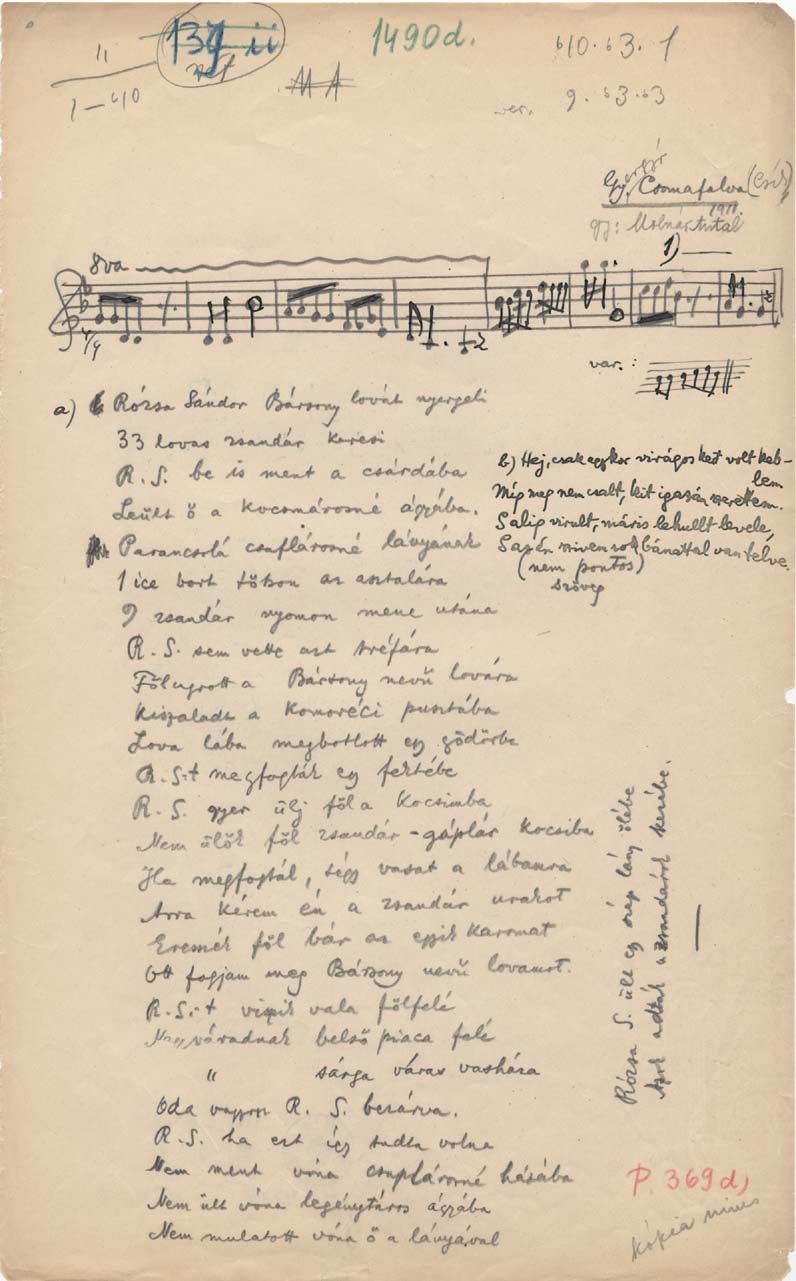 13g ii
1490d.
610.63.1
11
1-610
MA
ver. 9.63.63
Gyergyó
Gy. Csomafalva (Csík)
1911.
gy: Molnár Antal
8va
1)
4/4
var.:
a) Rózsa Sándor Bársony lovát nyergeli
33 lovas zsandár keresi
R. S. be is ment a csárdába
Leült ő a kocsmárosné ágyába.
Parancsolá csaplárosné lányának
1 ice bort töltsön az asztalára
9 zsandár nyomon mene utána
R. S. sem vette azt tréfára
Fölugrott a Bársony nevű lovára
Kiszaladt a Komoréci pusztába
Lova lába megbotlott egy gödörbe
R. S.-t megfogták egy fektébe
R. S. gyer ülj föl a kocsimba
Nem ülök föl zsandár-gáplár kocsiba
Ha megfogtál, tégy vasat a lábamra
Arra kérem én a zsandár urakot
Eresszék föl bár az egyik karomat
Ott fogjam meg Bársony nevű lovamot.
R. S.-t viszik vala fölfelé
Nagyváradnak belső piaca felé
" sárga város vasháza
Oda vagyon R. S. bezárva.
R. S. ha ezt így tudta volna
Nem ment vóna csaplárosné házába
Nem ült vóna legénytáros ágyába
Nem mulatott vóna ő a lányával
b) Hej, csak egykor virágos kert volt keb-
lem
Míg meg nem csalt, kit igazán szerettem.
S alig virult, máris lehullt levele,
S azén szivem sok bánattal van telve.
(nem pontos)
szöveg
Rózsa S. ült egy szép lány ölébe
Azok adták a zsandárok kezébe.
P. 369d,
kópia nincs